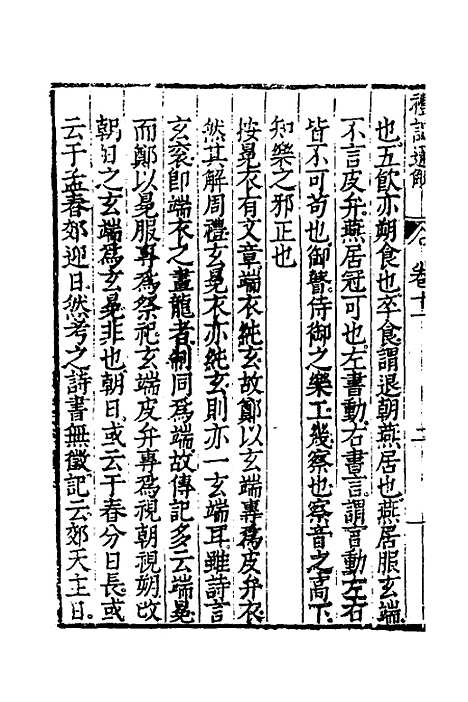 禮記通解 卷十一
也五飲亦朔食也卒食謂退朝燕居也燕居服玄端
不言皮弁燕居冠可也左書動右書言謂言動左右
皆不可苟也御瞽侍御之樂工幾察也察音之高下
知樂之邪正也
按冕衣有文章端衣純玄故鄭以玄端專為皮弁衣
然其解周禮玄冕衣亦純玄則亦一玄端耳雖詩言
玄衮卽端衣之畫龍者制同為端故傳記多云端冕
而鄭以冕服專為祭祀玄端皮弁專為視朝視朔改
朝日之玄端為玄冕非也朝日或云于春分日長或
云于孟春郊迎日然考之詩書無徵記云郊天主日